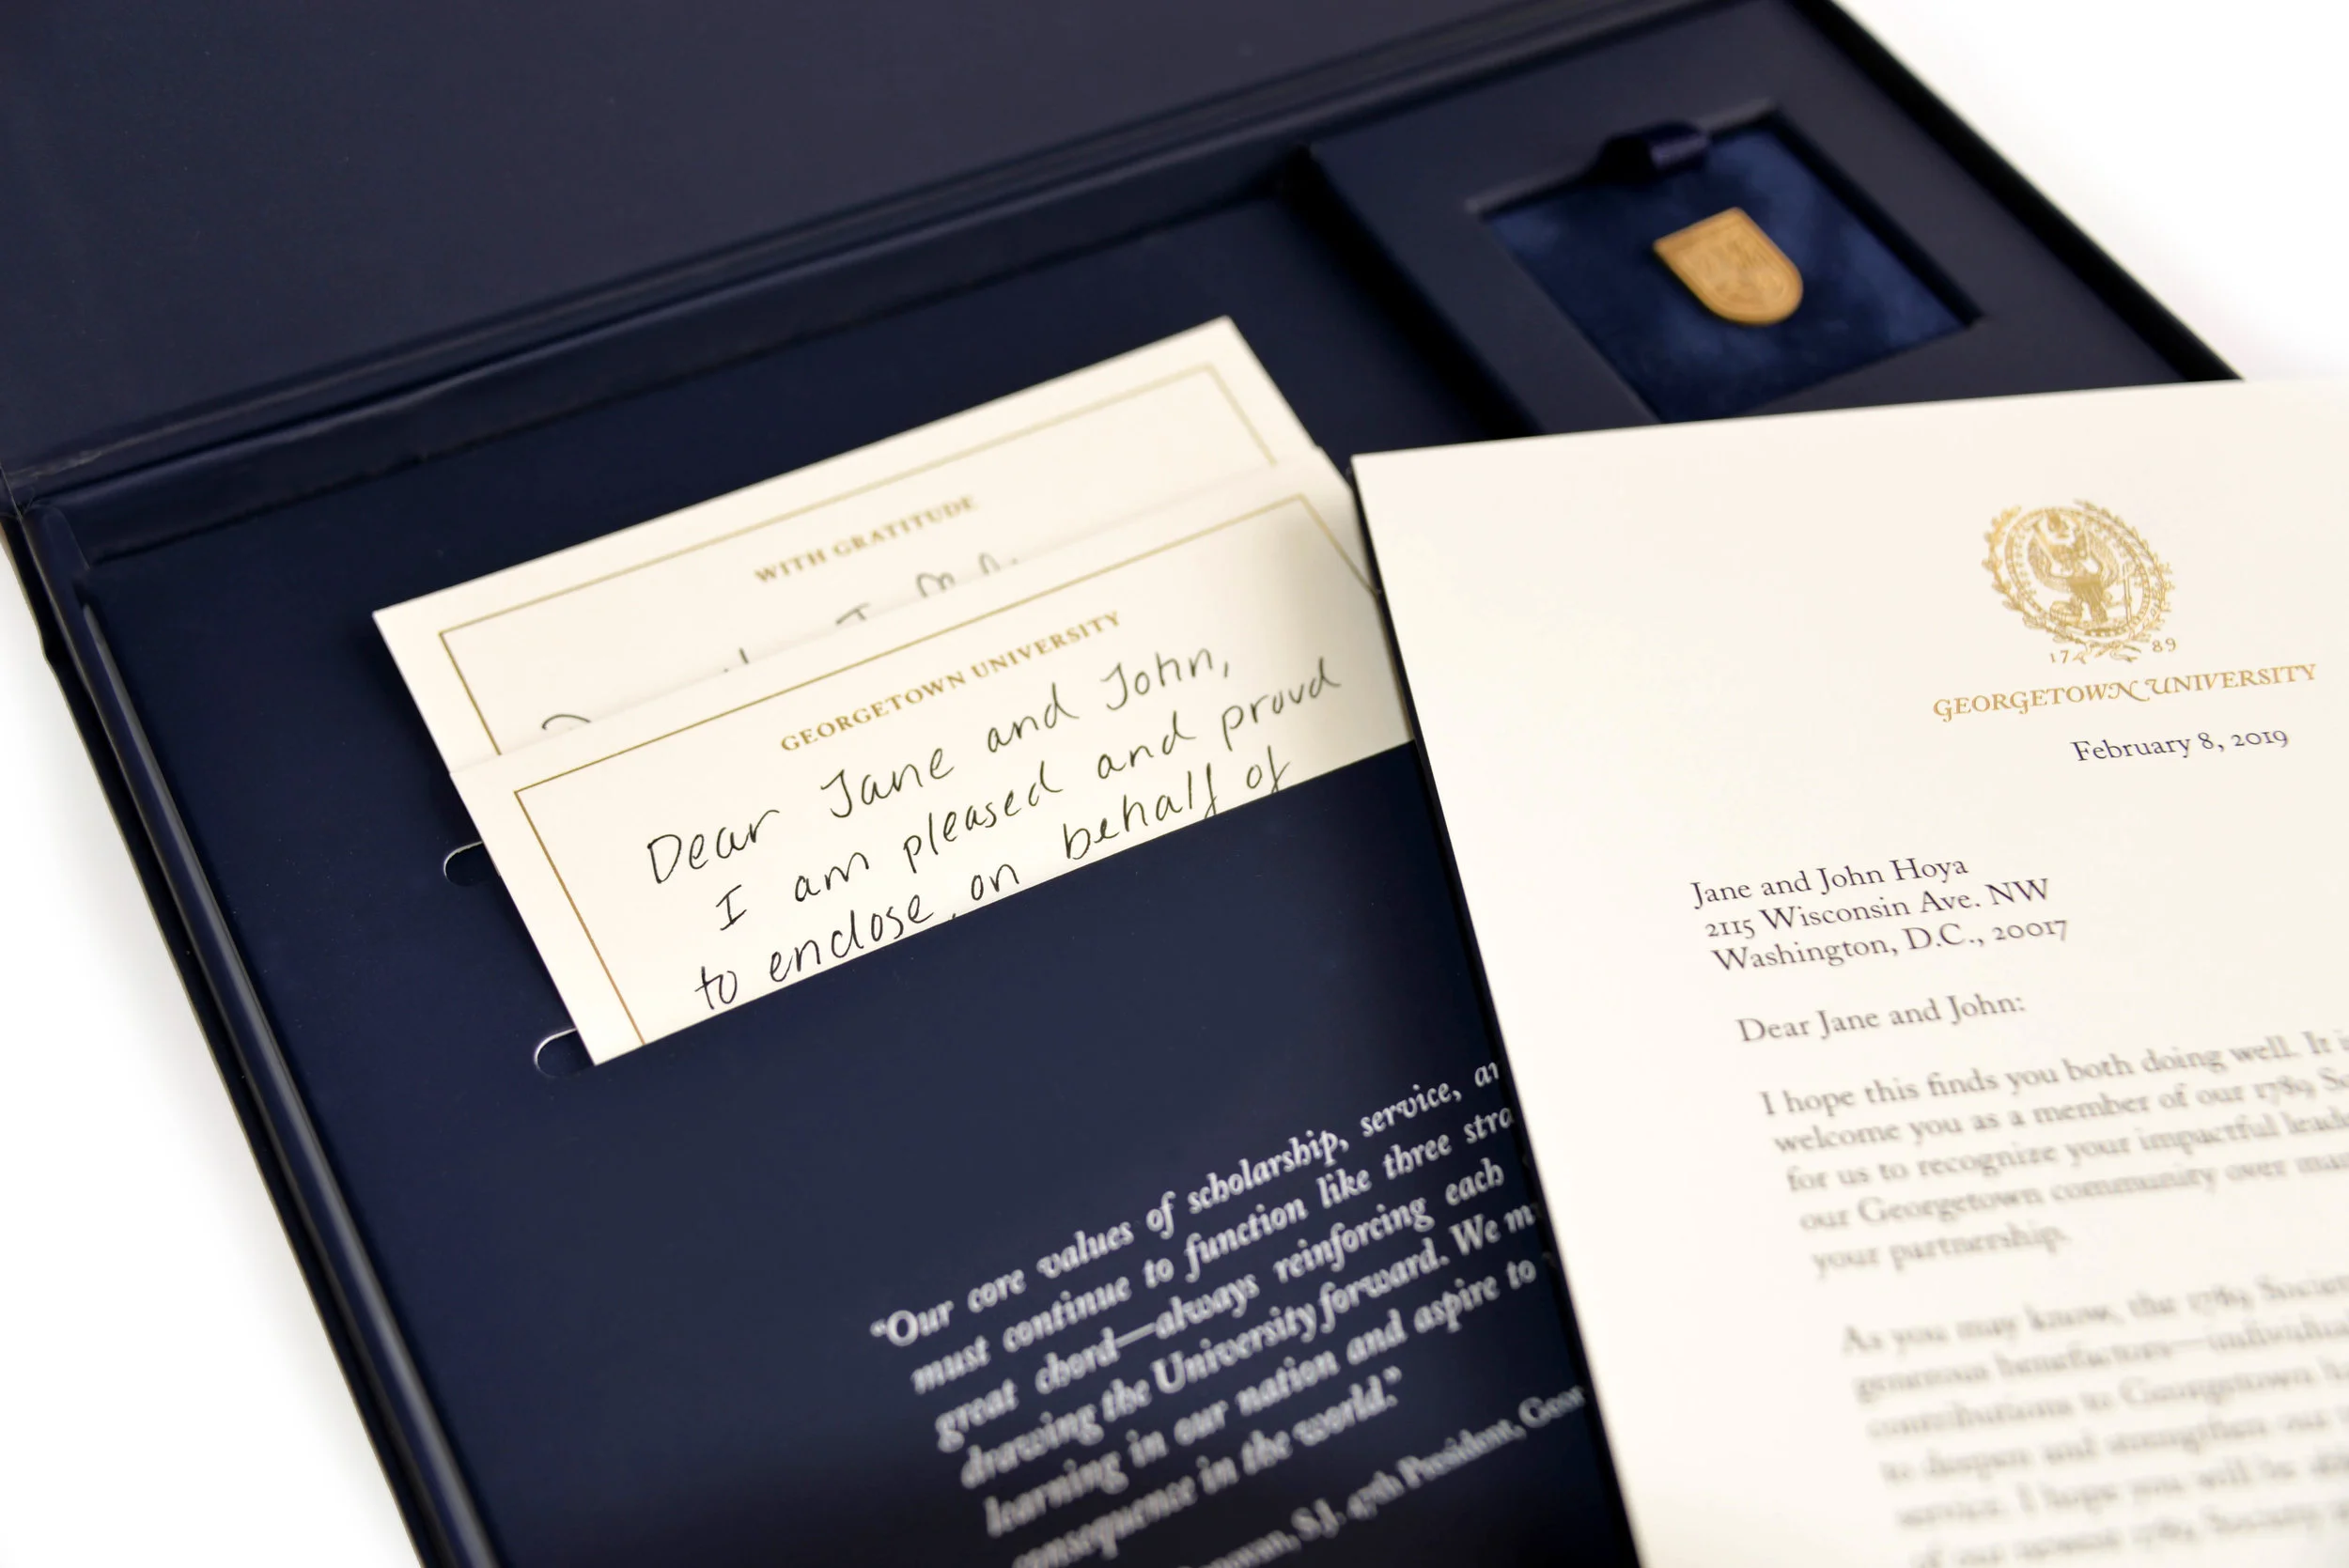 WITH GRATITUDE
GEORGETOWN UNIVERSITY
Dear Jane and John,
I am pleased and proud
to enclose, on behalf of
"Our core values of scholarship, service,
must continue to function like three
great chord—always reinforcing each
drawing the University forward. We
learning in our nation and aspire to
consequence in the world."
S.J. 47th President,
17 89
GEORGETOWN UNIVERSITY
February 8, 2019
Jane and John Hoya
2115 Wisconsin Ave. NW
Washington, D.C., 20017
Dear Jane and John:
I hope this finds you both doing well. It
welcome you as a member of our 1789
for us to recognize your impactful
our Georgetown community over
your partnership.
As you may know, the 1789 Society
generous benefactors—
contributions to Georgetown
to deepen and strengthen our
service. I hope you will be
of our newest 1789 Society